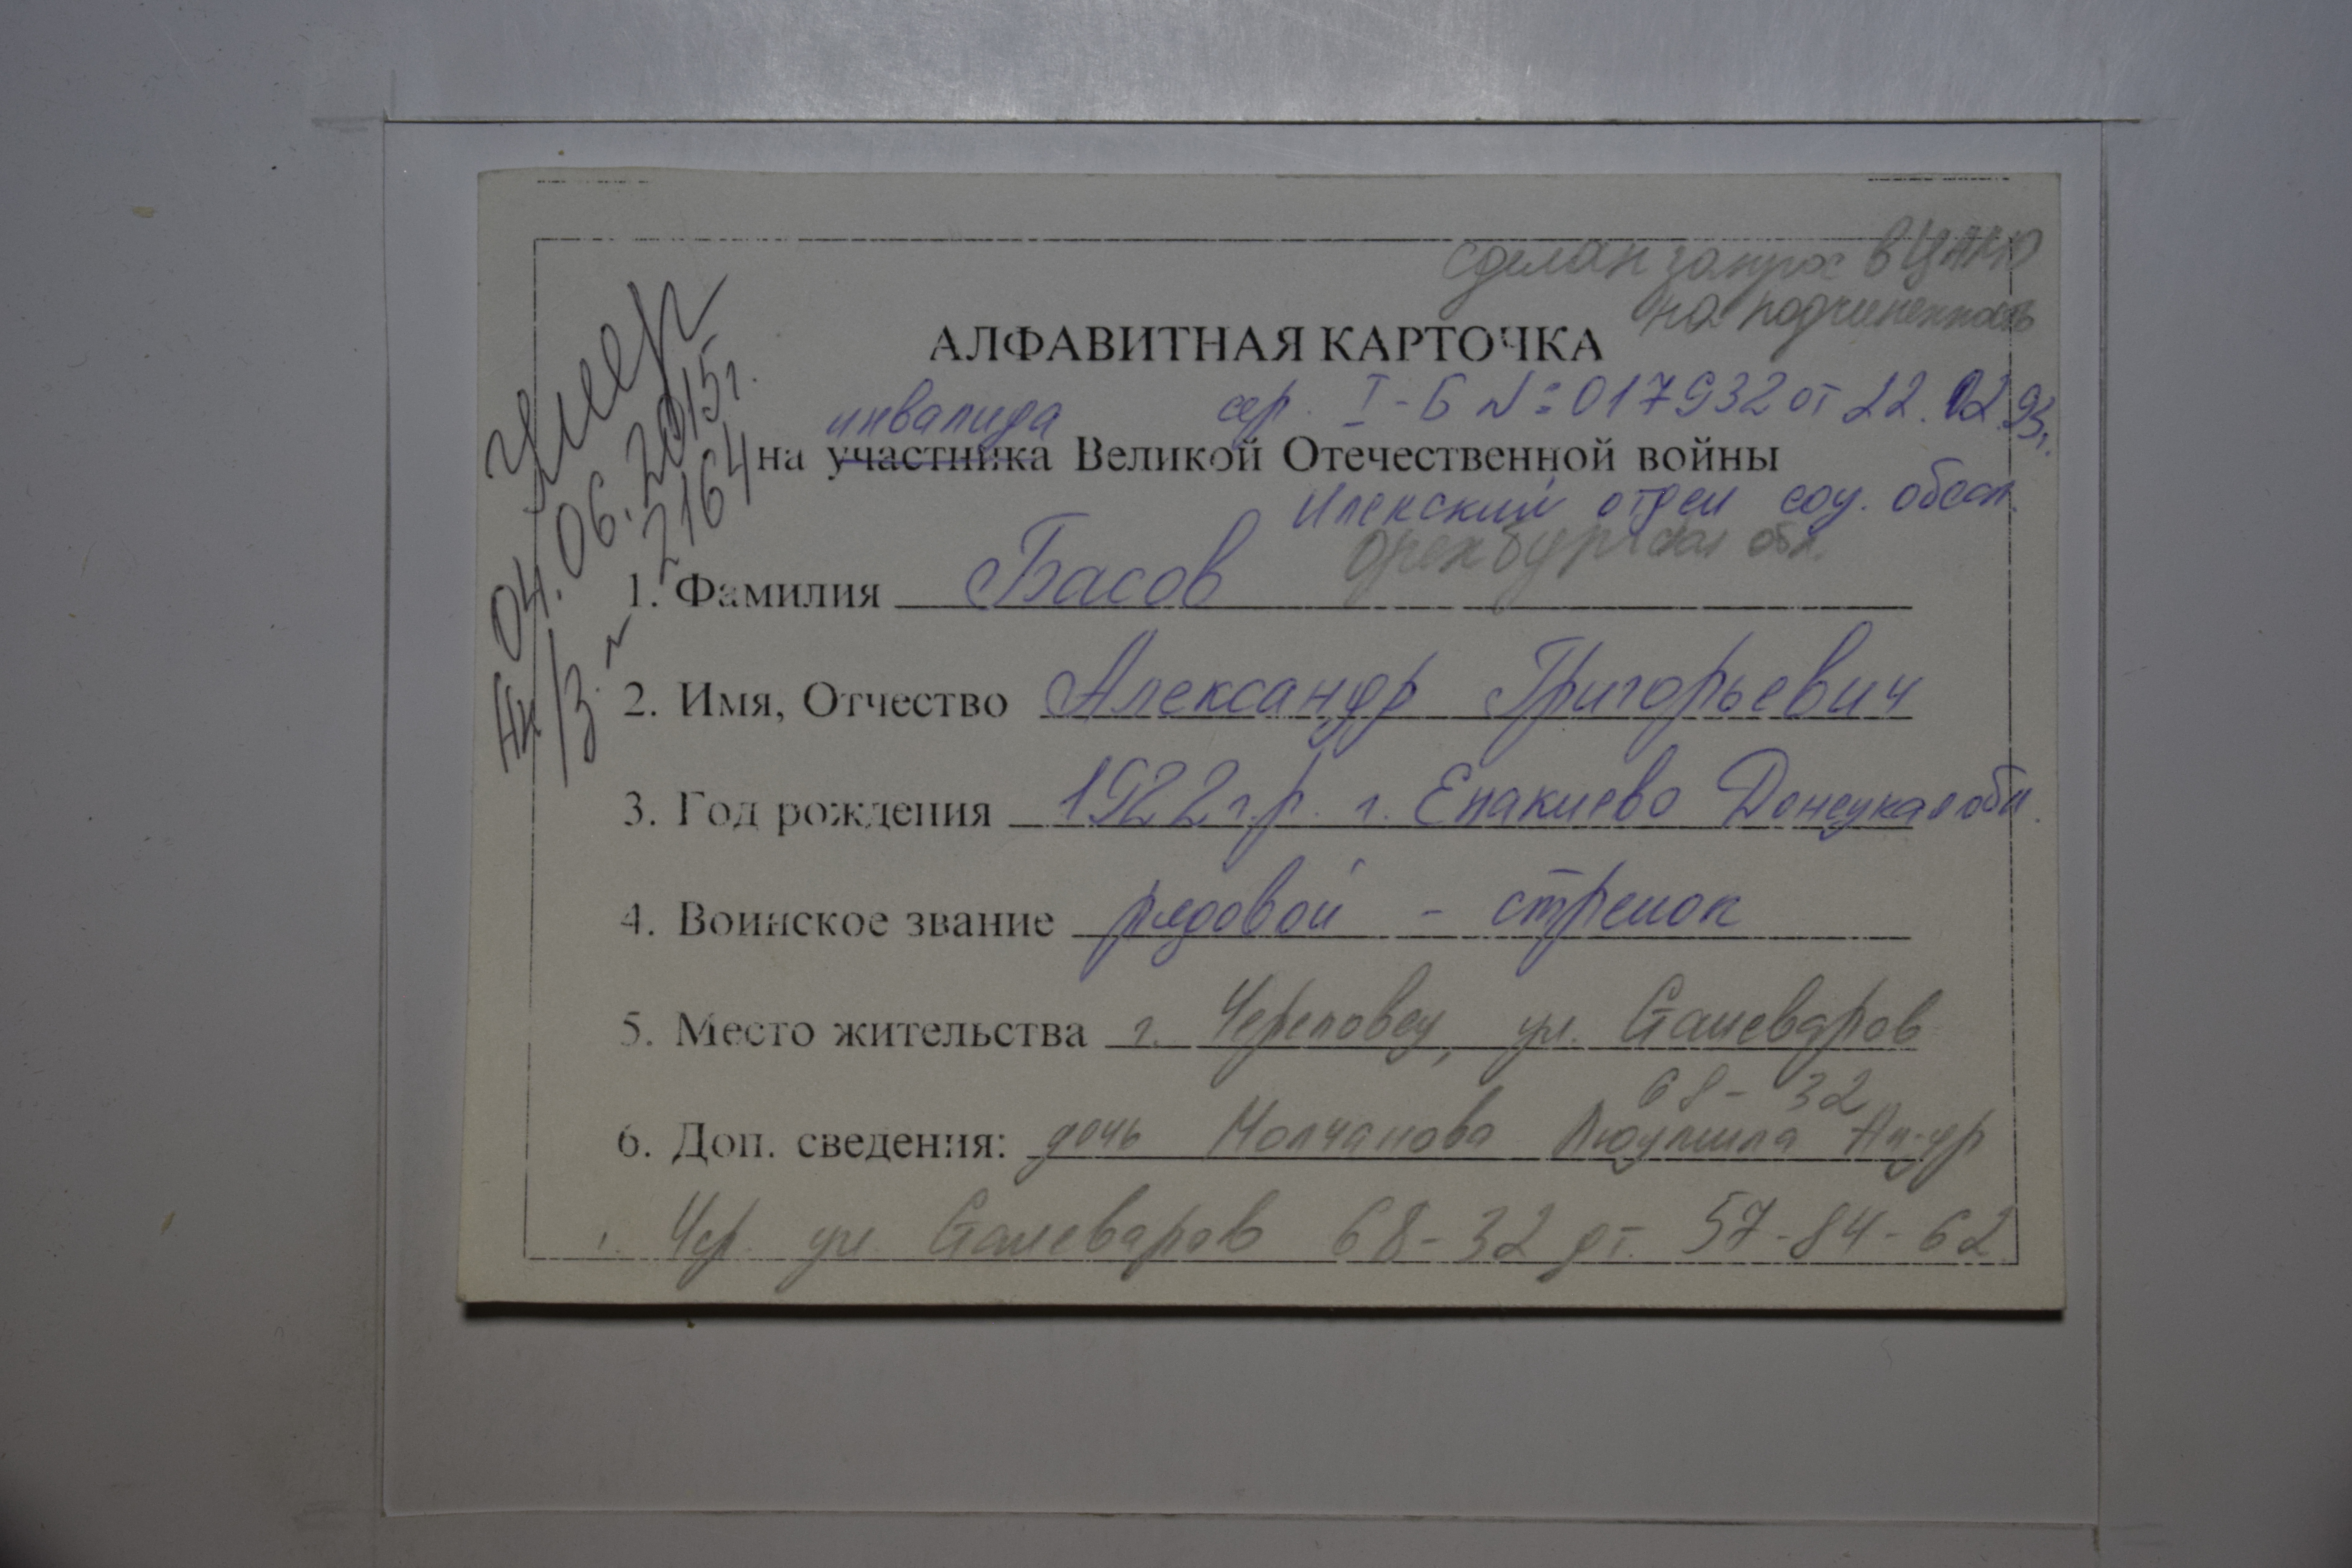 сделан запрос в ЦАМО
на подчиненность
АЛФАВИТНАЯ КАРТОЧКА
инвалида сер. I-Б №: 017932 от 22.02.93г.
на участника Великой Отечественной войны
Илекский отдел соц. обесп.
Оренбургская обл.
умер
04.06.2015г.
2164
1. Фамилия Басов
2. Имя, Отчество Александр Григорьевич
3. Год рождения 1922 г.р. г. Енакиево Донецкая обл.
4. Воинское звание рядовой - стрелок
5. Место жительства г. Череповец, ул. Сталеваров
68-32
6. Доп. сведения: дочь Молчанова Людмила Ал-др
г. Чер. ул. Сталеваров 68-32 дт. 57-84-62